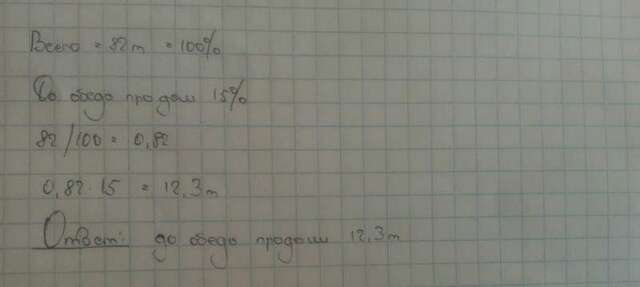 Всего = 82т = 100%
До обеда продали 15%
82/100 = 0,82
0,82 · 15 = 12,3т
Ответ: до обеда продали 12,3т